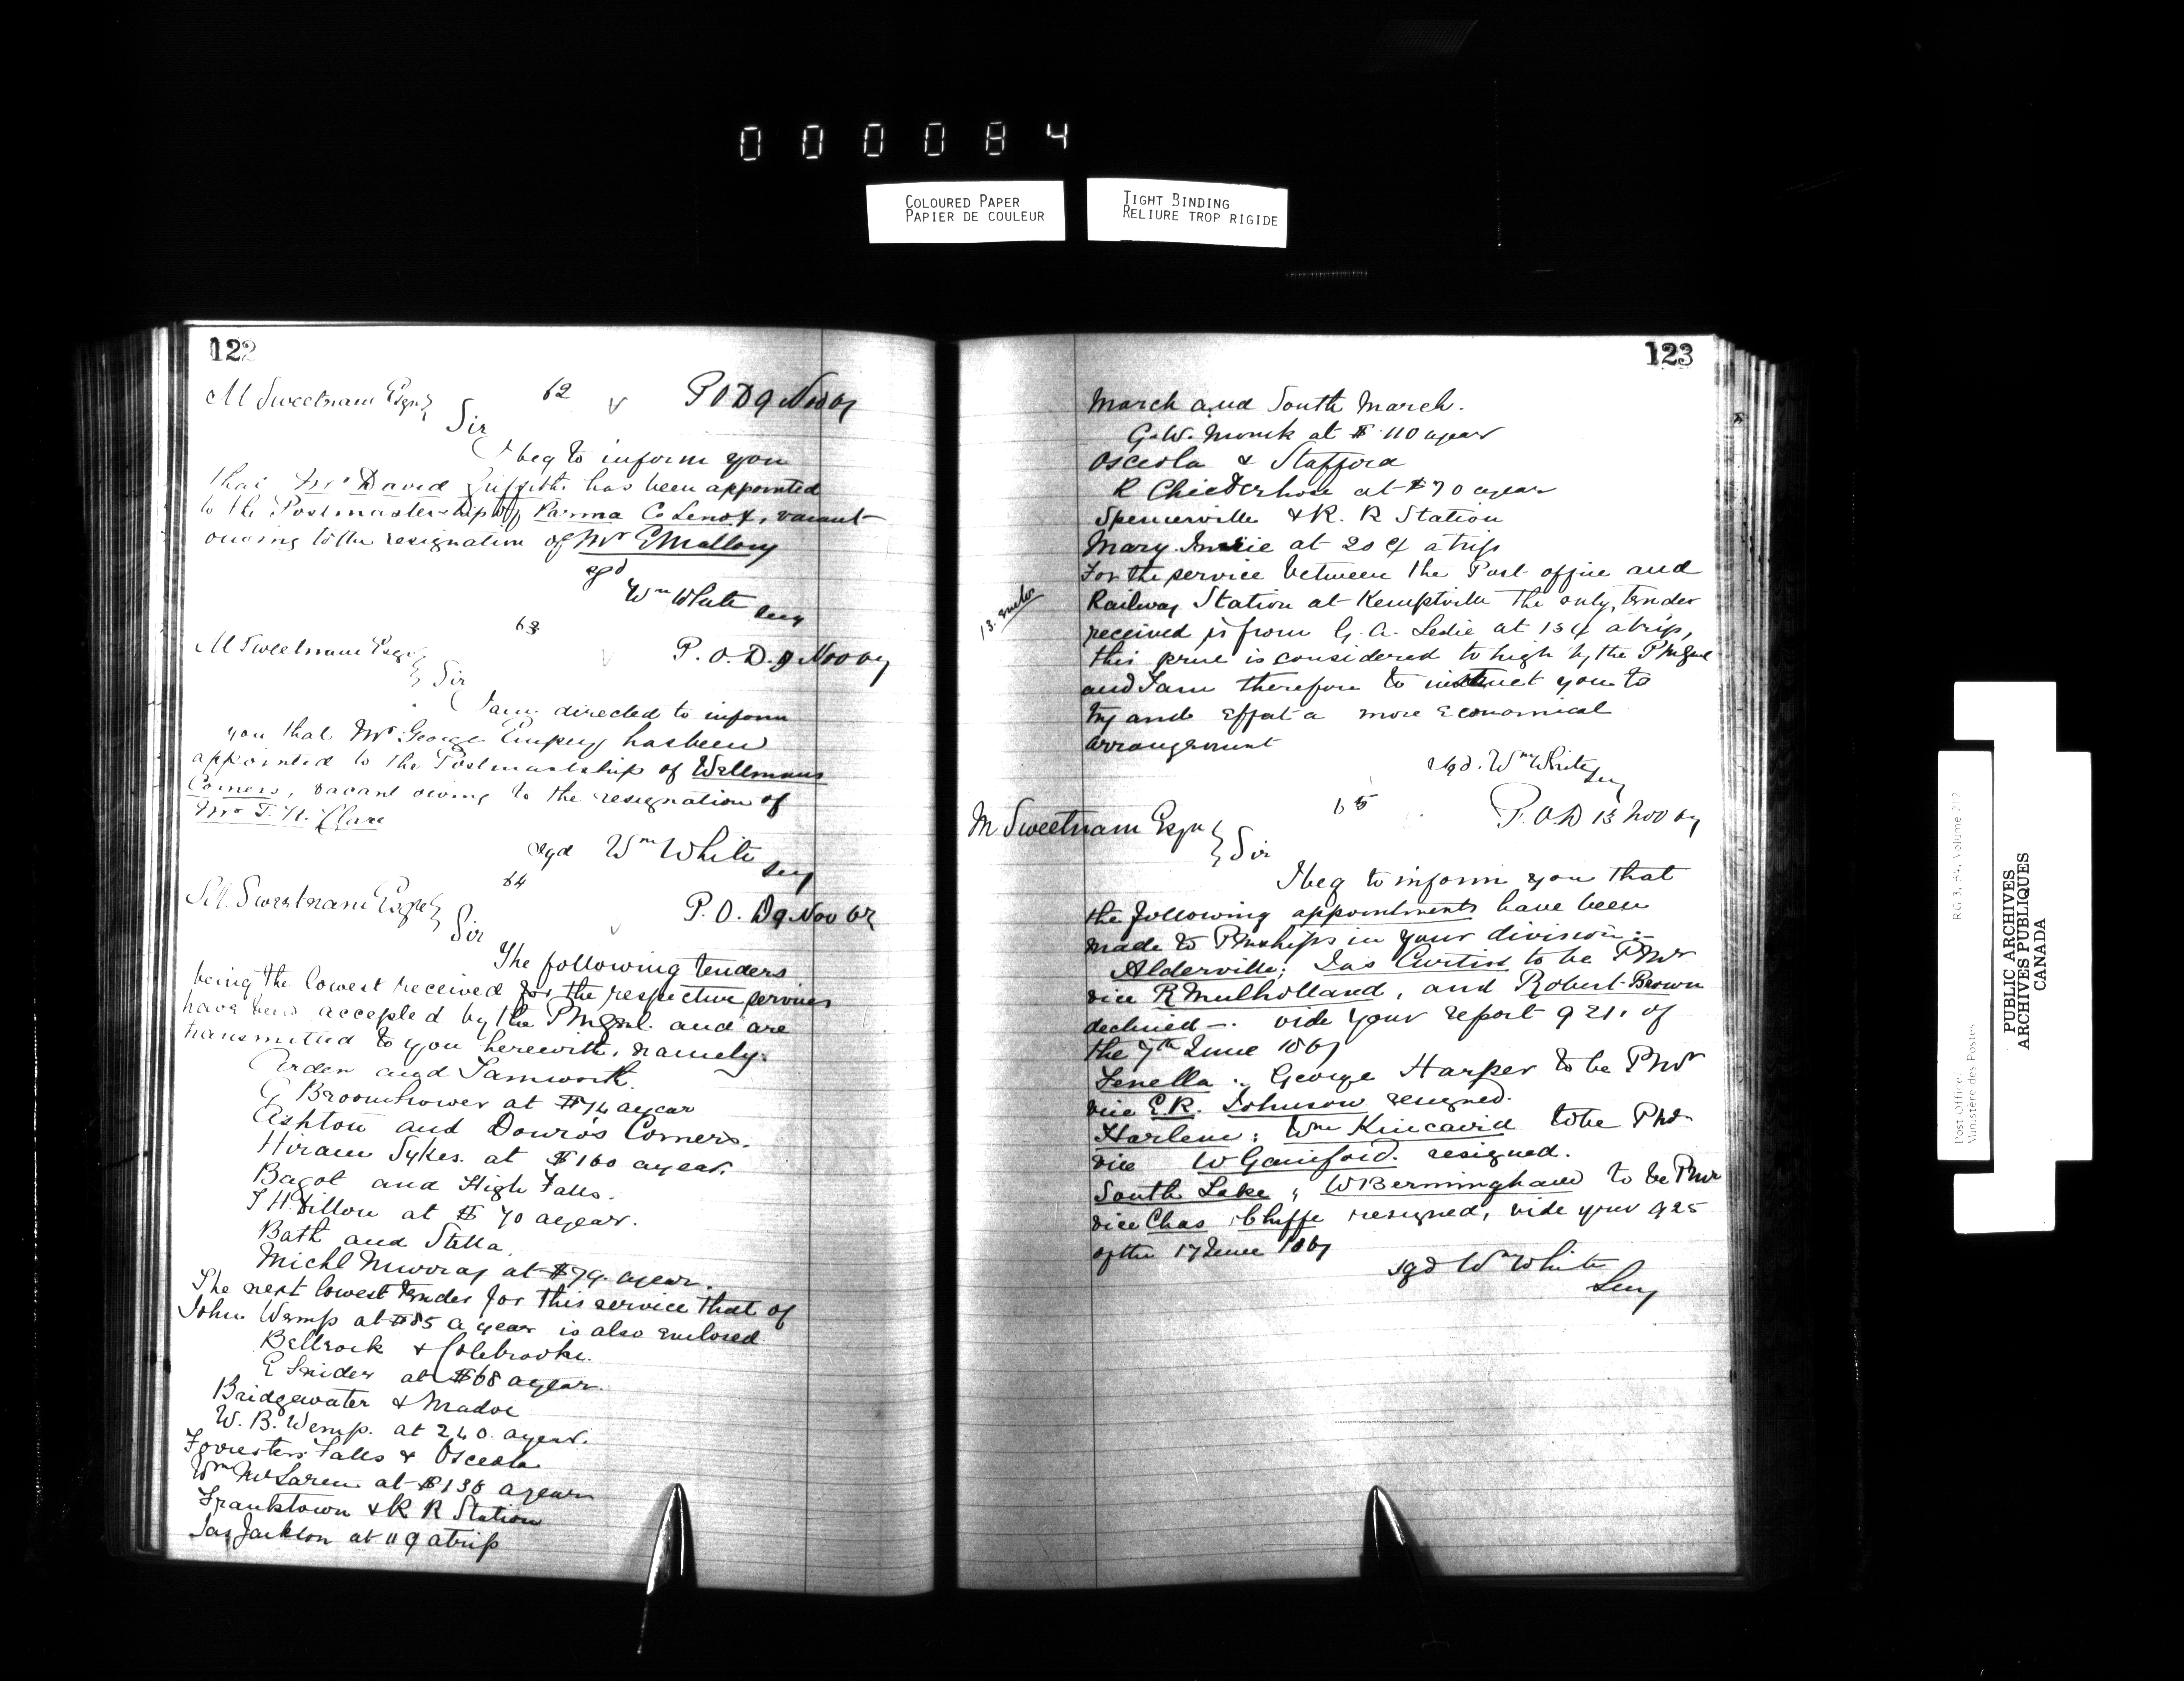 000084
COLOURED PAPER
PAPIER DE COULEUR
TIGHT BINDING
RELIURE TROP RIGIDE
122
M Sweetnam Esqr
62
P O D 9 Nov 67
Sir
I beg to inform you
that Mr David Griffith has been appointed
to the Postmastership of Parma Co Lenox, vacant
owing to the resignation of Mr E Mallory
sgd
Wm White
Secy
63
M Sweetnam Esqr
P. O. D. 9 Nov 67
Sir
I am directed to inform
you that Mr George Empey has been
appointed to the Postmastship of Wellmans
Corners, vacant owing to the resignation of
Mr T. H. Clare
sgd Wm White
Secy
64
M. Sweetnam Esqre
P. O. D 9 Nov 67
Sir
The following tenders
being the lowest received for the respective services
have been accepted by the PMGenl. and are
transmitted to you herewith, namely:
Arden and Tamworth.
G Broomhower at $74 a year
Ashton and Douro's Corners.
Hiram Sykes. at $160 a year.
Bagot and High Falls.
T H Dillon at $70 a year.
Bath and Stella.
Michl Murray at $79. a year.
The next lowest tender for this service that of
John Wemp at $85 a year is also enclosed
Bellrock & Colebrooke.
E Snider at $68 a year.
Bridgewater & Madoc
W. B. Wemp. at 240. a year.
Forresters Falls & Osceola
Wm McLaren at $138 a year
Franktown & R R Station
Jas Jackson at 11 ¢ a trip
123
March and South March.
G. W. Monk at $110 a year
Osceola & Stafford
R at $70 a year
Spencerville & R. R Station
Mary at 20 ¢ a trip
For the service between the Post office and
Railway Station at Kemptville the only tender
received is from G. A. Leslie at 15 ¢ a trip,
13.
this price is considered to high by the PMGenl
and I am therefore to instruct you to
try and effect a more economical
arrangement
sgd. Wm White
Secy
65
P. O. D 13 Nov 67
M Sweetnam Esqre
Sir
I beg to inform you that
the following appointments have been
made to PMships in your division:-
Alderville; Jas Curtiss to be PMr
vice R Mulholland, and Robert Brown
declined —. vide your report 921. of
the 7th June 1867
Fenella: George Harper to be PMr
vice E. R. Johnson resigned.
Harlem: Wm Kincavid to be PMr
vice W Gainford. resigned.
South Lake; W Bermingham to be PMr
vice Chas Cluffe resigned, vide your 925
of the 17 June 1867
sgd Wm White
Secy
Post Office
Ministère des Postes
RG 3, B4, Volume 212
PUBLIC ARCHIVES
ARCHIVES PUBLIQUES
CANADA